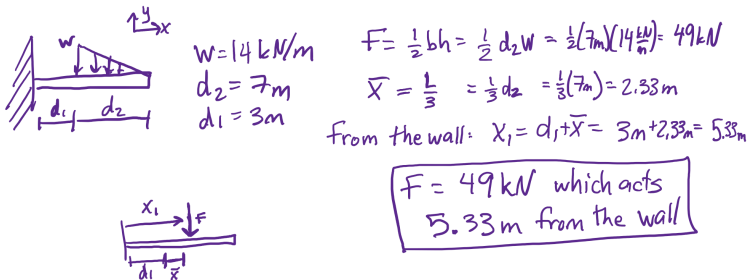 y
x
w
d₁ d₂
w = 14 kN/m
d₂ = 7m
d₁ = 3m
F = ½ bh = ½ d₂ w = ½(7m)(14 kN/m) = 49 kN
x̄ = L/3 = ⅓ d₂ = ⅓(7m) = 2.33 m
from the wall: x₁ = d₁ + x̄ = 3m + 2.33m = 5.33m
F = 49 kN which acts
5.33 m from the wall
x₁
F
d₁ x̄